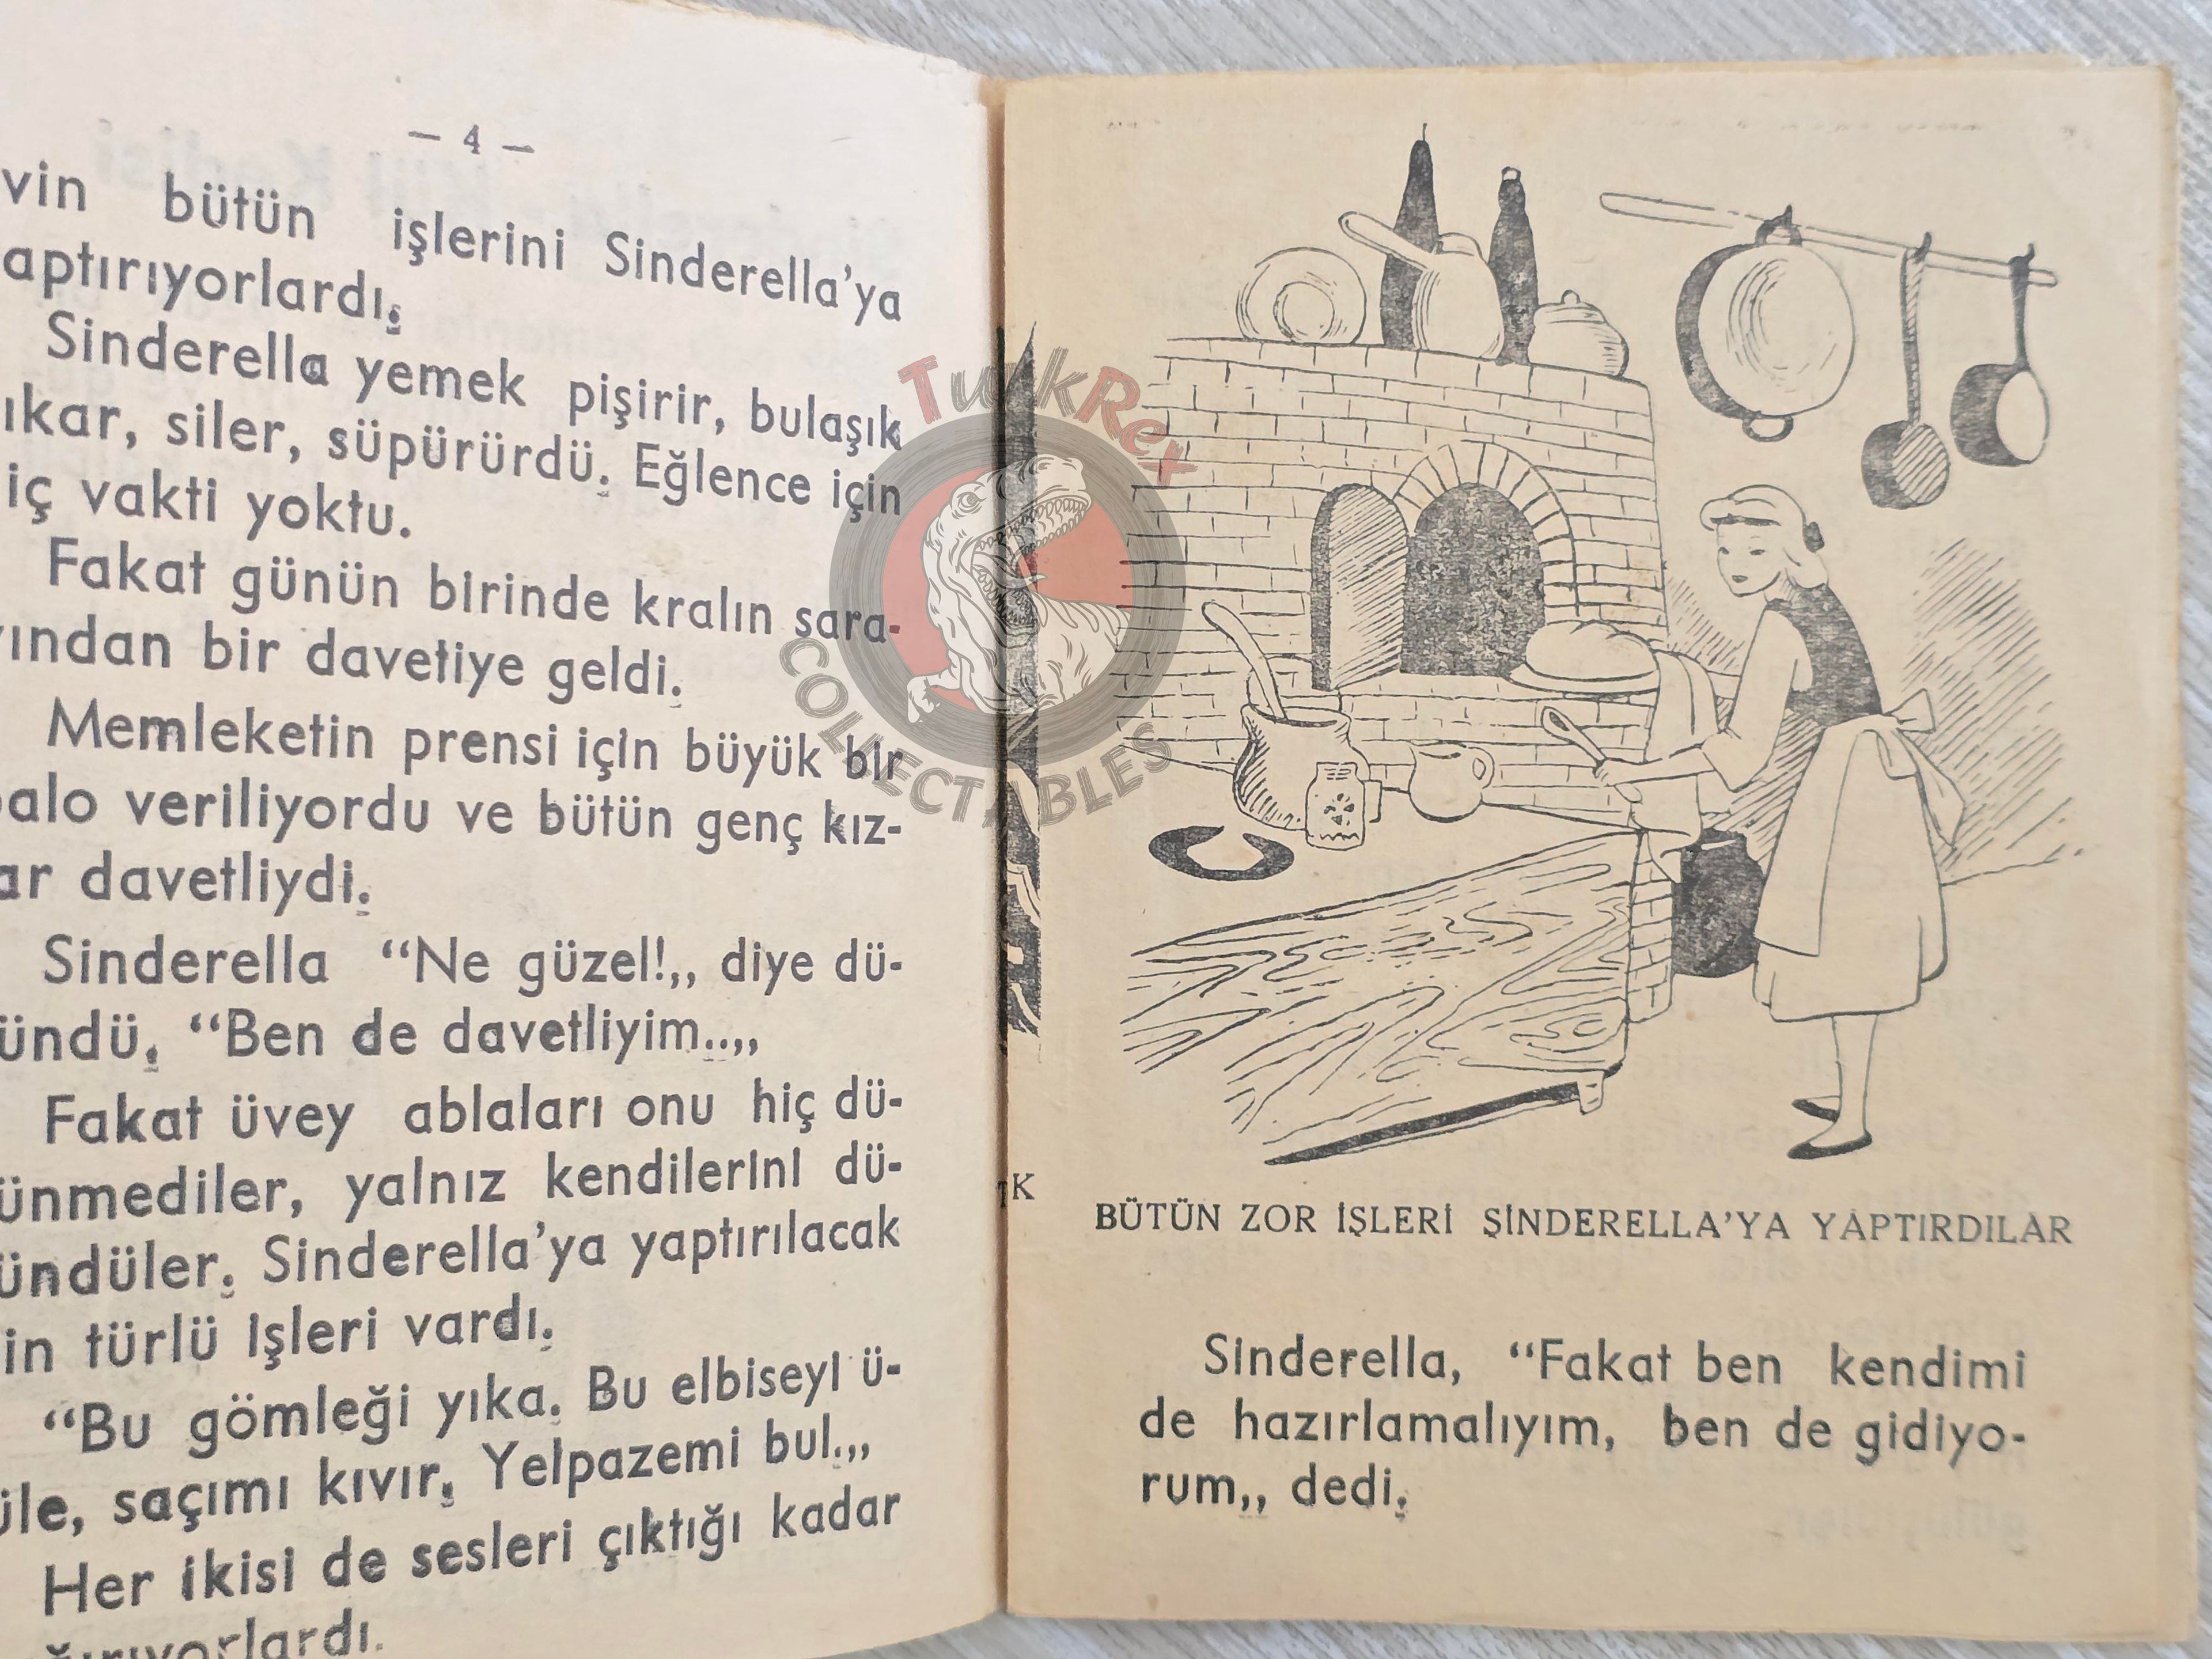 — 4 —
vin bütün işlerini Sinderella'ya
aptırıyorlardı.
Sinderella yemek pişirir, bulaşık
ıkar, siler, süpürürdü. Eğlence için
iç vakti yoktu.
Fakat günün birinde kralın sara-
yından bir davetiye geldi.
Memleketin prensi için büyük bir
balo veriliyordu ve bütün genç kız-
ar davetliydi.
Sinderella “Ne güzel!,, diye dü-
ündü. “Ben de davetliyim..,,
Fakat üvey ablaları onu hiç dü-
ünmediler, yalnız kendilerini dü-
ündüler. Sinderella'ya yaptırılacak
in türlü işleri vardı.
“Bu gömleği yıka. Bu elbiseyi ü-
üle, saçımı kıvır. Yelpazemi bul.,,
Her ikisi de sesleri çıktığı kadar
ğırıyorlardı.
TurkRex
COLLECTABLES
K
BÜTÜN ZOR İŞLERİ SİNDERELLA'YA YAPTIRDILAR
Sinderella, “Fakat ben kendimi
de hazırlamalıyım, ben de gidiyo-
rum,, dedi.